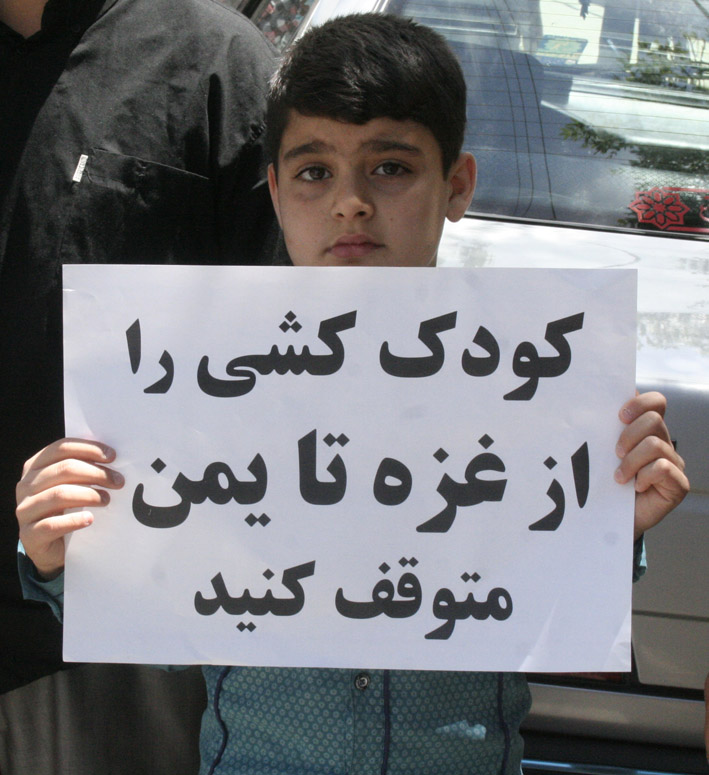 کودک کشی را
از غزه تا یمن
متوقف کنید